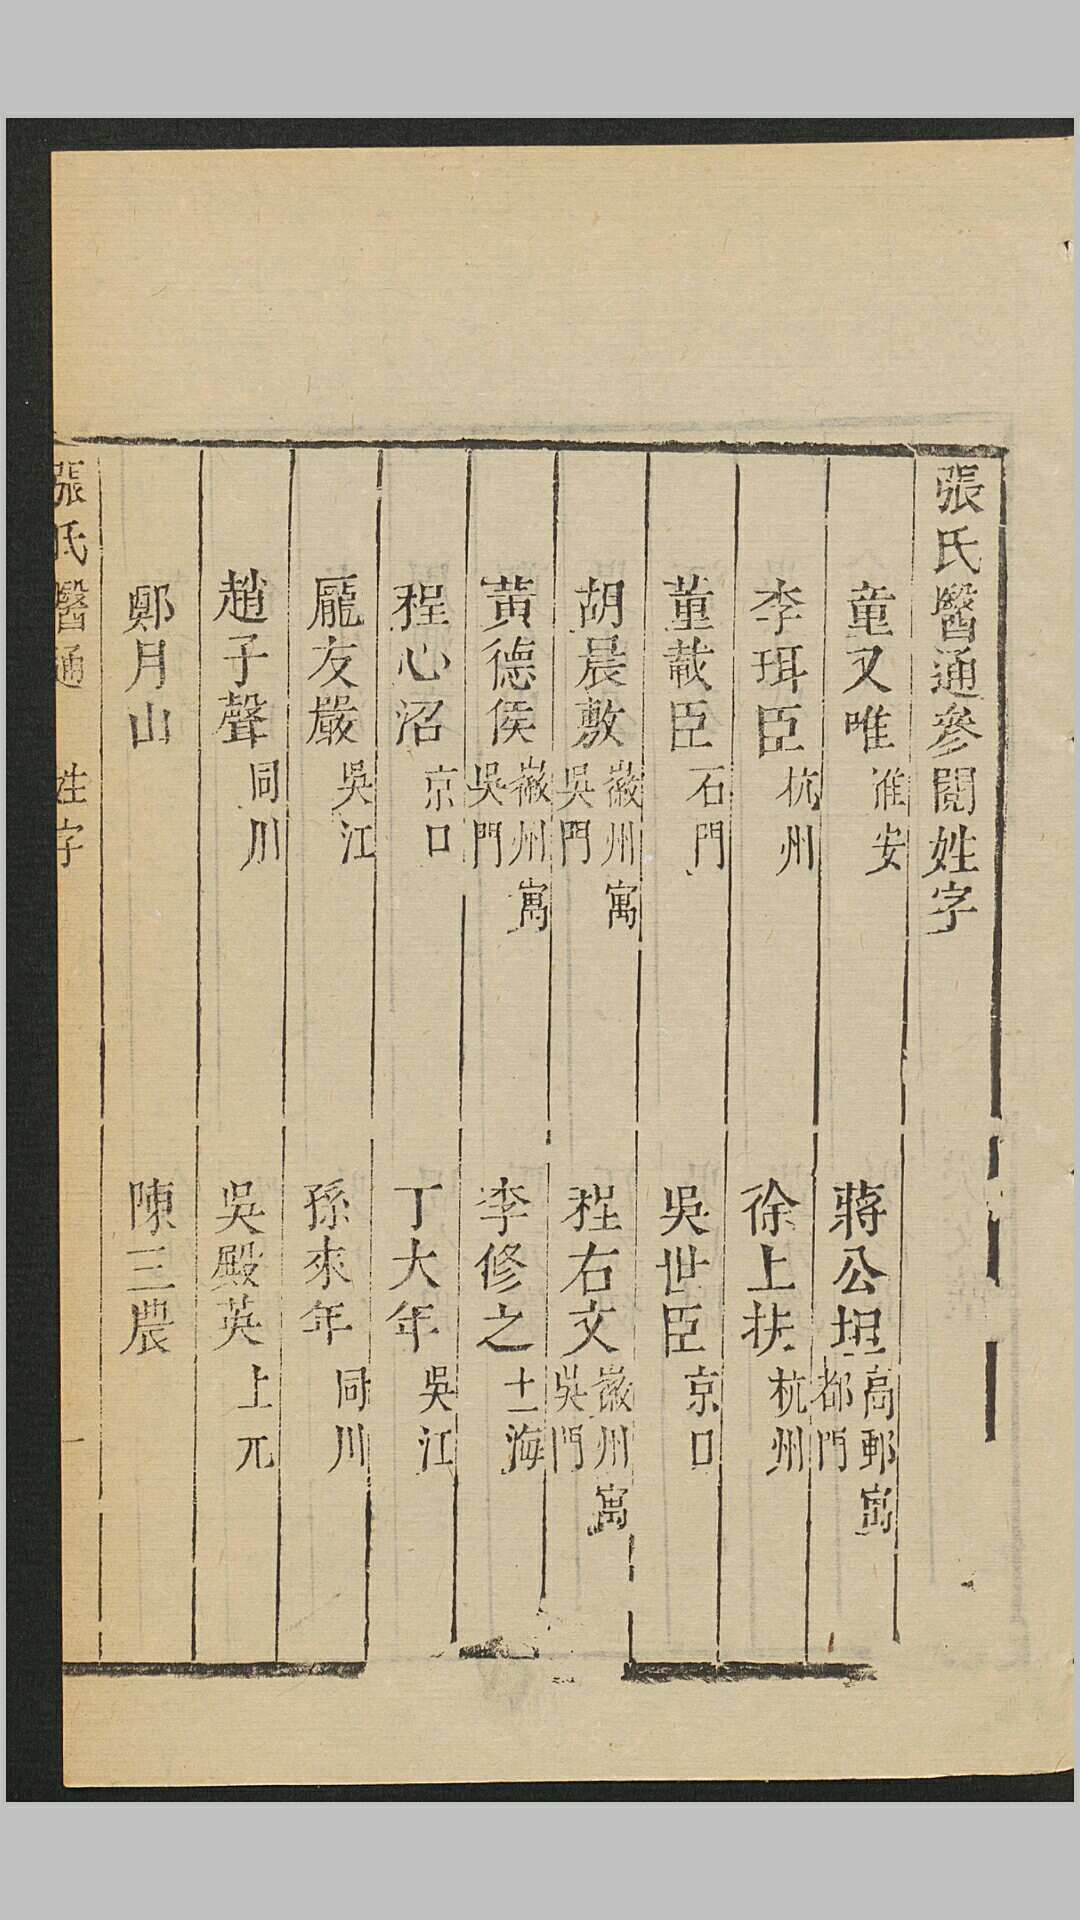 張氏醫通參閱姓字
童又唯 淮安 蔣公坦 高郵寓都門
李珥臣 杭州 徐上扶 杭州
董載臣 石門 吳世臣 京口
胡晨敷 徽州寓吳門 程右文 徽州寓吳門
黃德侯 徽州寓吳門 李修之 上海
程心沼 京口 丁大年 吳江
龐友巖 吳江 孫來年 同川
趙子聲 同川 吳殿英 上元
鄭月山 陳三農
張氏醫通 姓字 一